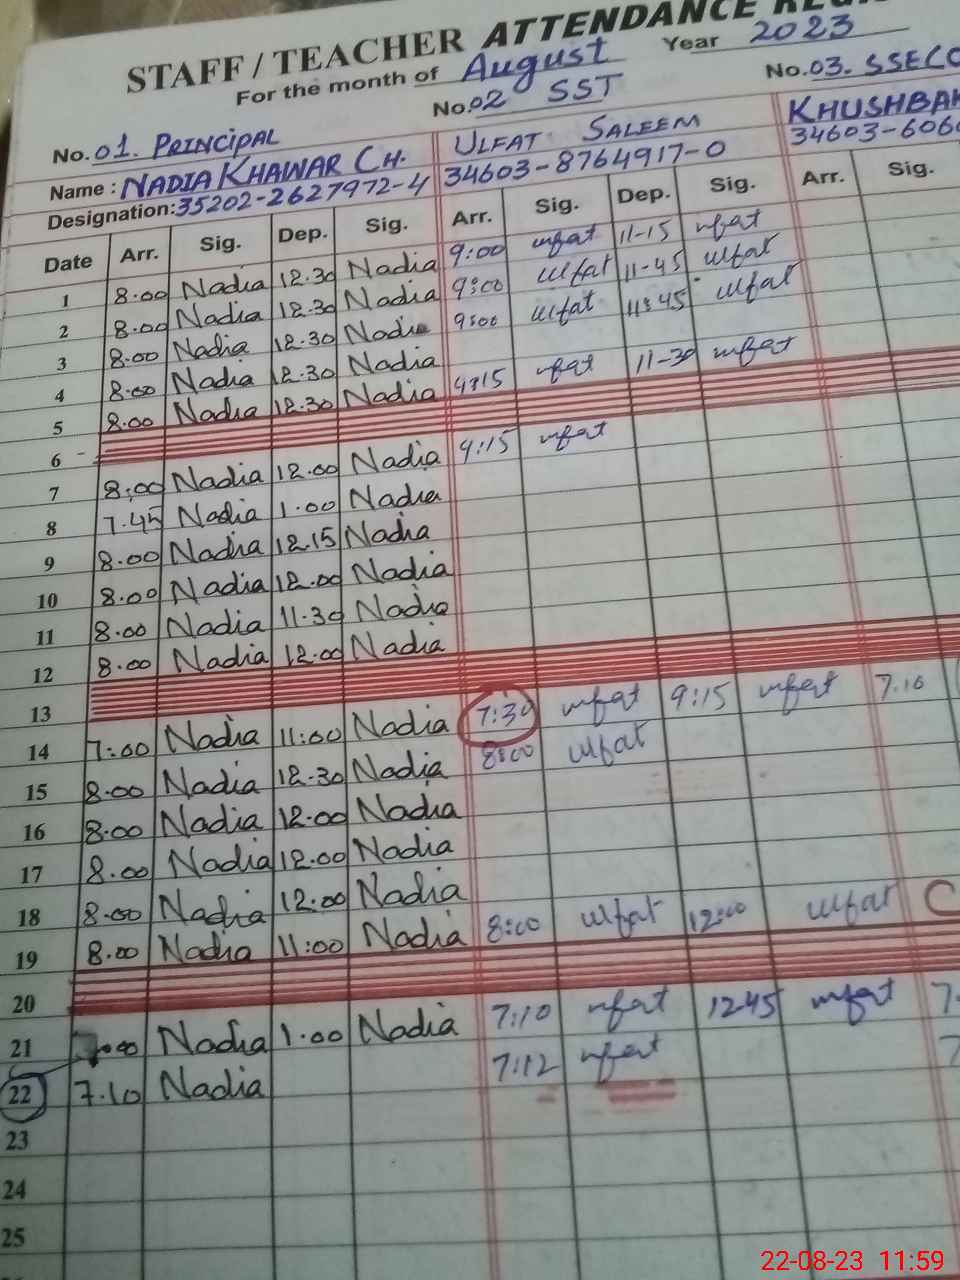 STAFF / TEACHER ATTENDANCE
For the month of August Year 2023
No.01. PRINCIPAL No.02 SST No.03. SSE
Name : NADIA KHAWAR CH. ULFAT SALEEM KHUSHBAK
Designation: 35202-2627972-4 34603-8764917-0 34603-606
Date Arr. Sig. Dep. Sig. Arr. Sig. Dep. Sig. Arr. Sig.
1 8.00 Nadia 12.30 Nadia 9:00 ulfat 11-15 ulfat
2 8.00 Nadia 12.30 Nadia 9:00 ulfat 11-45 ulfat
3 8.00 Nadia 12.30 Nadia 9:00 ulfat 11:45 ulfat
4 8.00 Nadia 12.30 Nadia
5 8.00 Nadia 12.30 Nadia 9:15 ulfat 11-30 ulfat
6
7 8:00 Nadia 12.00 Nadia 9:15 ulfat
8 7.45 Nadia 1.00 Nadia
9 8.00 Nadia 12.15 Nadia
10 8.00 Nadia 12.00 Nadia
11 8.00 Nadia 11.30 Nadia
12 8.00 Nadia 12.00 Nadia
13
14 7:00 Nadia 11:00 Nadia 7:30 ulfat 9:15 ulfat 7.10
15 8.00 Nadia 12.30 Nadia 8:00 ulfat
16 8.00 Nadia 12.00 Nadia
17 8.00 Nadia 12.00 Nadia
18 8.00 Nadia 12.00 Nadia
19 8.00 Nadia 11:00 Nadia 8:00 ulfat 12:00 ulfat C
20
21 Nadia 1.00 Nadia 7:10 ulfat 12.45 ulfat 7
22 7.10 Nadia 7:12 ulfat 7
23
24
25
22-08-23 11:59